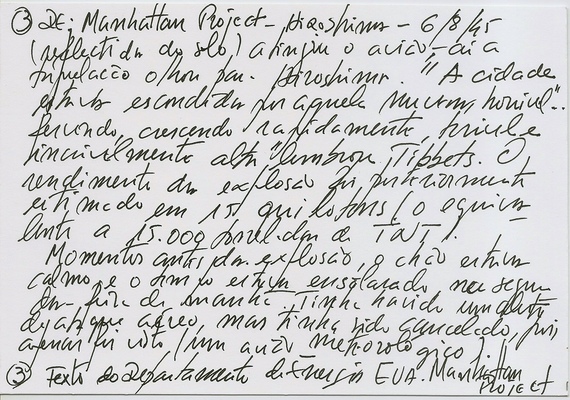 ③ DE: Manhattan Project - Hiroshima - 6/8/45
(reflectida do solo) atingiu o avião - aí a
tripulação olhou para Hiroshima. "A cidade
estava escondida por aquela nuvem horrível...
fervendo, crescendo rapidamente, terrível e
incrivelmente alta" lembrou Tibbets. O
rendimento da explosão foi posteriormente
estimado em 15 quilotons (o equiva
lente a 15.000 toneladas de TNT).
Momentos antes da explosão, o chão estava
calmo e o tempo estava ensolarado na segun
da-feira de manhã. Tinha havido um alerta
de ataque aéreo, mas tinha sido cancelado, pois
apenas foi visto (um avião metorológico)
③ Texto do Departamento de Energia EUA. Manhattan
PROJECT